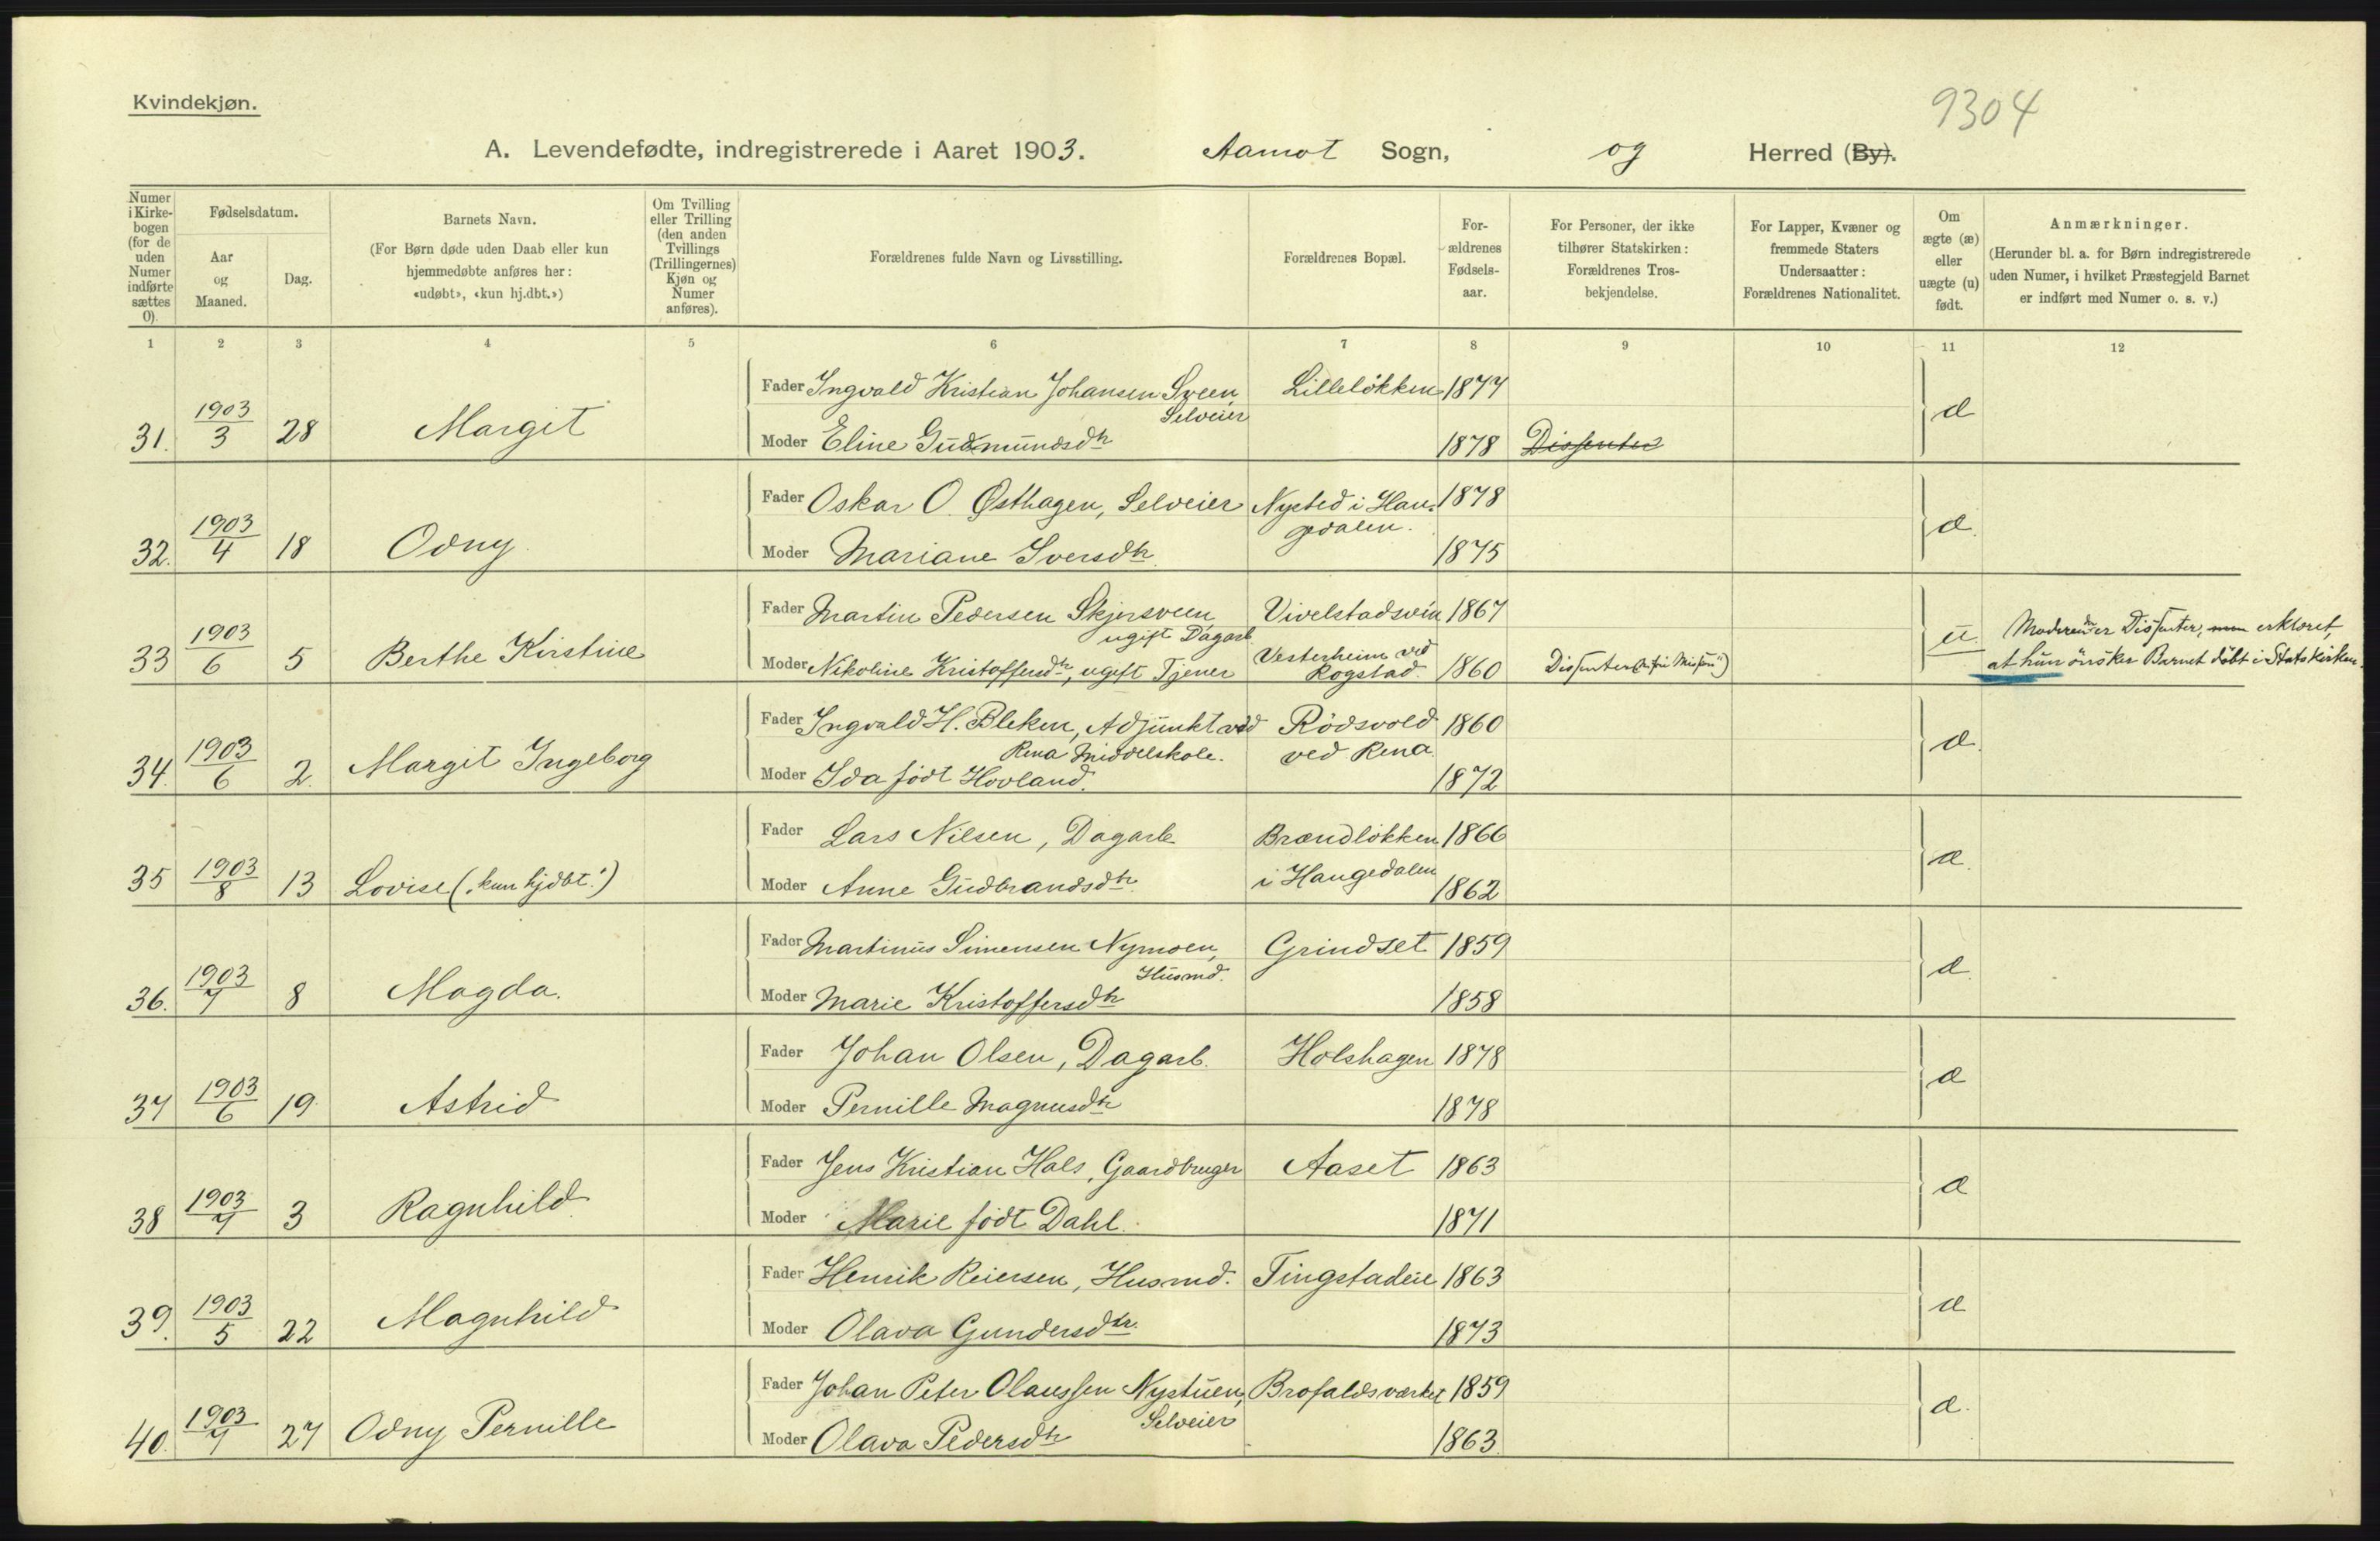 9304
Kvindekjøn.
A. Levendefødte, indregistrerede i Aaret 1903. Aamot Sogn, og Herred (By).
Numer i Kirke-bogen (for de uden Numer indførte sættes 0).
Fødselsdatum.
Aar og Maaned.
Dag.
Barnets Navn.
(For Børn døde uden Daab eller kun
hjemmedøbte anføres her:
«udøbt», «kun hj.dbt.»)
Om Tvilling
eller Trilling
(den anden
Tvillings
(Trillingernes)
Kjøn og
Numer
anføres).
Forældrenes fulde Navn og Livsstilling.
Forældrenes Bopæl.
For-
ældrenes
Fødsels-
aar.
For Personer, der ikke
tilhører Statskirken:
Forældrenes Tros-
bekjendelse.
For Lapper, Kvæner og
fremmede Staters
Undersaatter:
Forældrenes Nationalitet.
Om
ægte (æ)
eller
uægte (u)
født.
Anmærkninger.
(Herunder bl. a. for Børn indregistrerede
uden Numer, i hvilket Præstegjeld Barnet
er indført med Numer o. s. v.)
1 2 3 4 5 6 7 8 9 10 11 12
Fader Ingvald Kristian Johansen Sveen, Lilleløkken 1877
Selveier
31. 1903/3 28 Margit Moder Eline Gudmundsdtr 1878 Dissenter æ
Fader Oskar O. Østhagen, Selveier Nysted i Hau- 1878
gedalen.
32. 1903/4 18 Odny Moder Mariane Iversdtr. 1875 æ.
Fader Martin Pedersen Skjersveen, Vivelstadsvea 1867
ugift Dagarb
33 1903/6 5 Berthe Kirstine Moder Nikoline Kristoffersdtr, ugift Tjener Vesterheim ved
Rogstad. 1860 Dissenter ("fri Misjon") u.
Moderen er Dissenter, men erklæret,
at hun ønsker Barnet døbt i Statskirken.
Fader Ingvald H. Bleken, Adjunkt ved Rødsvold 1860
Rena Middelskole. ved Rena.
34. 1903/6 2. Margit Ingeborg Moder Ida født Hovland. 1872 æ.
Fader Lars Nilsen, Dagarb Brændløkken 1866
35 1903/8 13 Lovise ("kun hjdbt.") Moder Anne Gudbrandsdtr. i Haugedalen 1862 æ.
Fader Martinus Simensen Nymoen, Grindset 1859
Husmd.
36. 1903/7 8 Magda. Moder Marie Kristoffersdtr 1858 æ.
Fader Johan Olsen, Dagarb. Holshagen 1878
37 1903/6 19 Astrid Moder Pernille Magnusdtr 1878 æ
Fader Jens Kristian Hals, Gaardbruger Aaset 1863
38 1903/7 3 Ragnhild Moder Marie født Dahl. 1871 æ
Fader Henrik Reiersen, Husmd. Tingstadeie 1863
39. 1903/5 22 Magnhild Moder Olava Gundersdtr. 1873 æ
Fader Johan Peter Olaussen Nystuen, Brofaldsværket 1859
Selveier
40. 1903/7 27 Odny Pernille Moder Olava Pedersdtr 1863. æ.